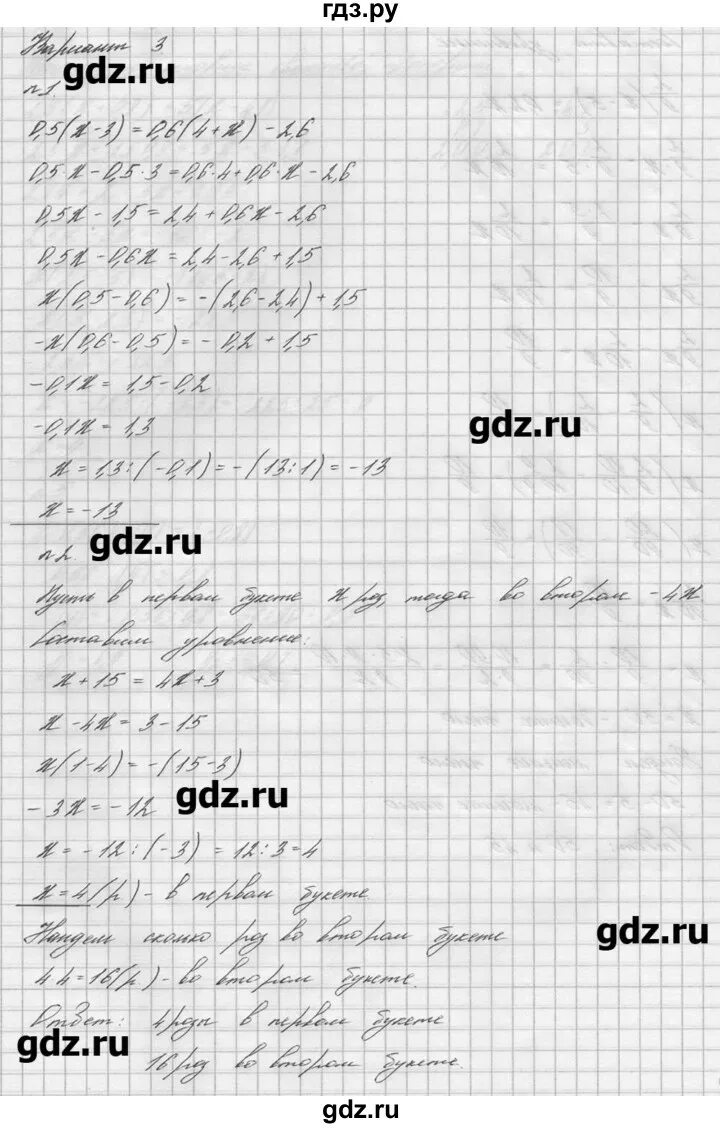 гдз.ру
Вариант 3
gdz.ru
№1.
0,5(x-3)=0,6(4+x)-2,6
0,5·x-0,5·3=0,6·4+0,6·x-2,6
0,5x-1,5=2,4+0,6x-2,6
0,5x-0,6x=2,4-2,6+1,5
x(0,5-0,6)=-(2,6-2,4)+1,5
-x(0,6-0,5)=-0,2+1,5
-0,1x=1,5-0,2
-0,1x=1,3
gdz.ru
x=1,3:(-0,1)=-(13:1)=-13
x=-13
gdz.ru
№2.
Пусть в первом букете x роз, тогда во втором -4x
Составим уравнение:
x+15=4x+3
x-4x=3-15
x(1-4)=-(15-3)
gdz.ru
-3x=-12
x=-12:(-3)=12:3=4
x=4(р)-в первом букете.
gdz.ru
Найдем сколько роз во втором букете
4·4=16(р)-во втором букете.
Ответ: 4 розы в первом букете
gdz.ru
16 роз во втором букете.
gdz.ru